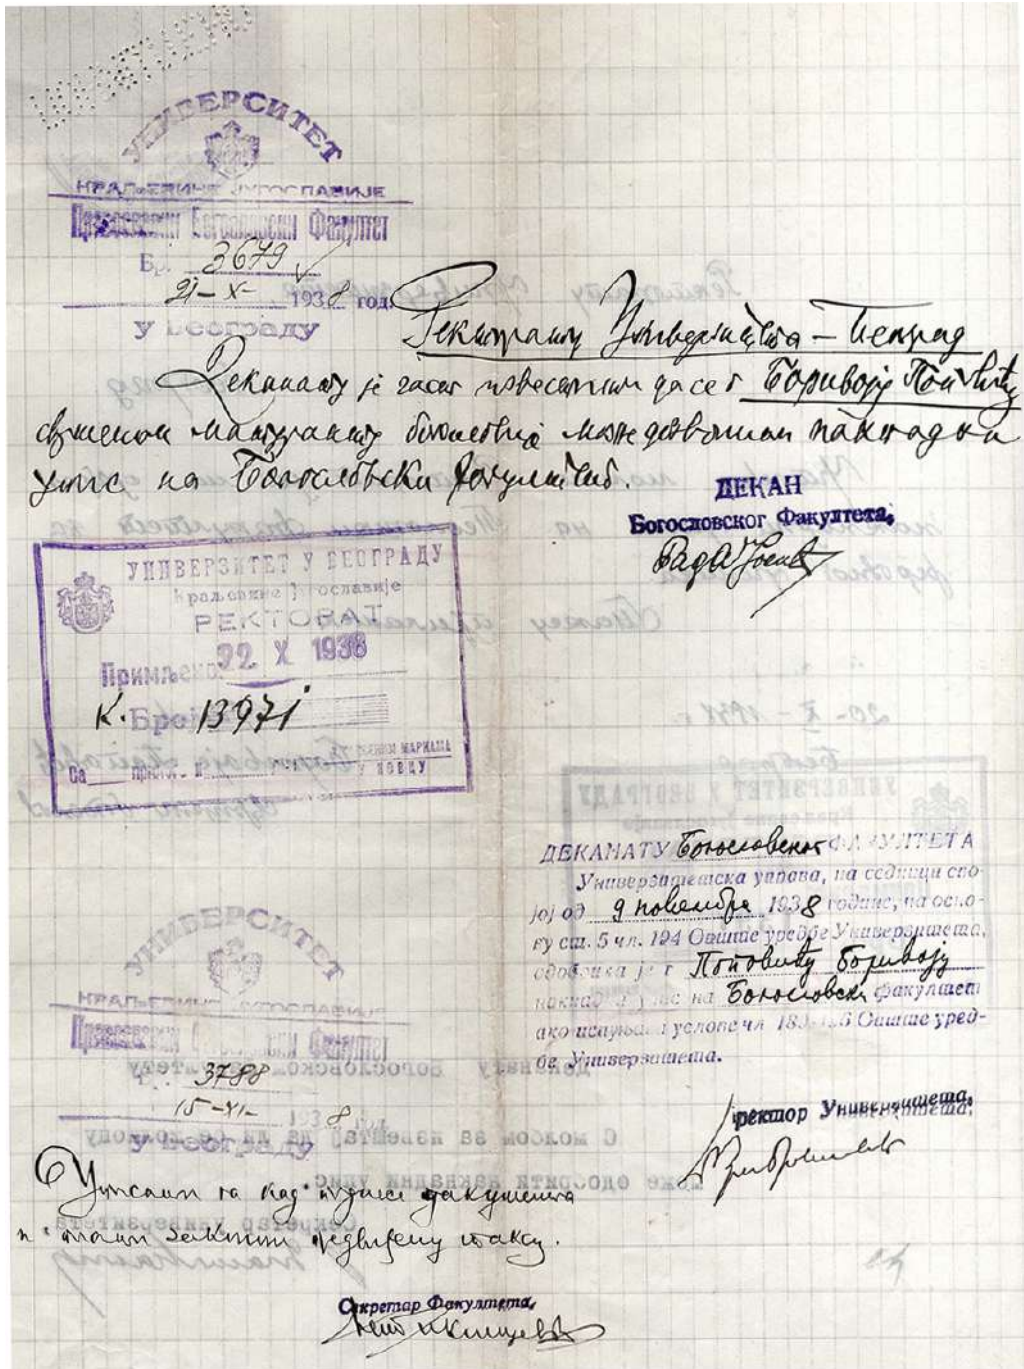 УНИВЕРСИТЕТ
КРАЉЕВИНЕ ЈУГОСЛАВИЈЕ
Православни Богословски Факултет
Бр. 3679
21-X- 1938 год.
У БЕОГРАДУ
Ректорату Универзитета – Београд
Деканату је част известити да се г Боривоју Поповићу
свршеном матуранту богословије може дозволити накнадни
упис на Богословски факултет.
ДЕКАН
Богословског Факултета,
УНИВЕРЗИТЕТ У БЕОГРАДУ
Краљевине Југославије
РЕКТОРАТ
Примљено 22 X 1938
К. Број 13971
Са
МАРКАМА
У НОВЦУ
ДЕКАНАТУ Богословског ФАКУЛТЕТА
Универзитетска управа, на седници сво-
јој од 9 новембра 1938 године, на осно-
ву ст. 5 чл. 194 Опште уредбе Универзитета,
одобрила је г Поповићу Боривоју
накнадни упис на Богословски факултет
ако испуњава услове чл Опште уред-
бе Универзитета.
Ректор Универзитета,
УНИВЕРСИТЕТ
КРАЉЕВИНЕ ЈУГОСЛАВИЈЕ
Православни Богословски Факултет
Бр. 3788
15-XI- 1938 год.
У БЕОГРАДУ
Уписати га кад поднесе документа
и плати законом предвиђену таксу.
Секретар Факултета,